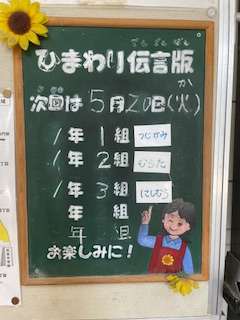 ひまわり伝言版
次回は5月20日(火)
1年1組 つじがみ
1年2組 むらた
1年3組 にしむら
年 組
年 組
お楽しみに!